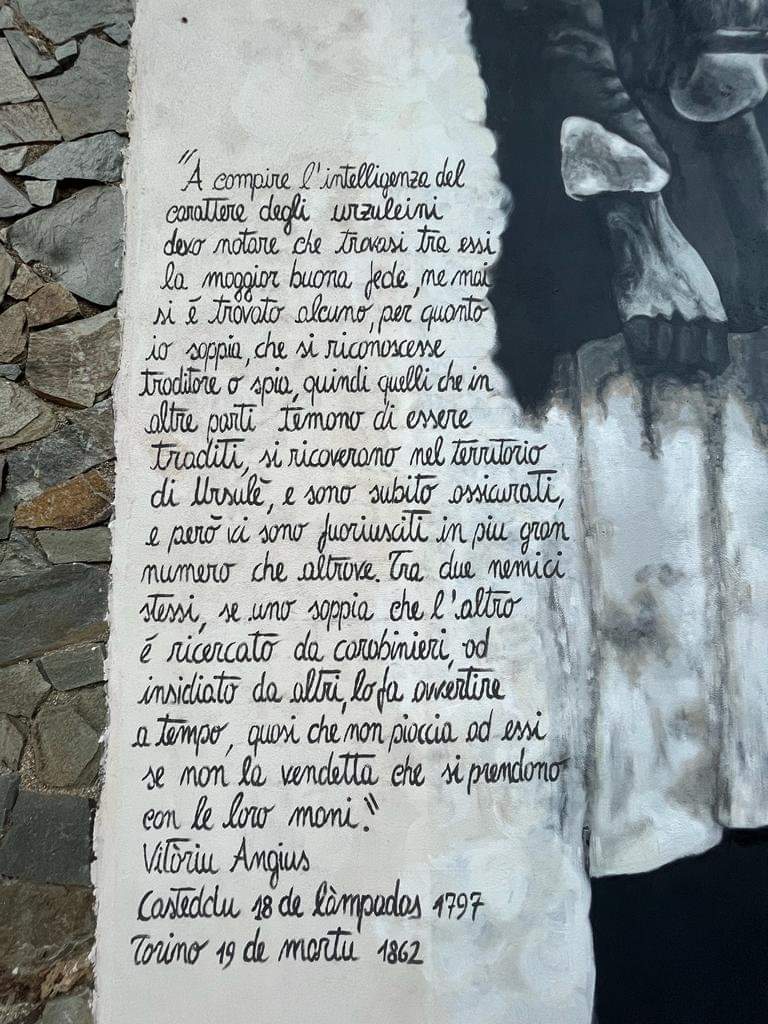 "A compire l'intelligenza del
carattere degli urzuleini
devo notare che trovasi tra essi
la maggior buona fede, ne mai
si é trovato alcuno, per quanto
io sappia, che si riconoscesse
traditore o spia, quindi quelli che in
altre parti temono di essere
traditi, si ricoverano nel territorio
di Ursulè, e sono subito assicurati,
e però vi sono fuoriusciti in piu gran
numero che altrove. Tra due nemici
stessi, se uno sappia che l'altro
é ricercato da carabinieri, od
insidiato da altri, lo fa avvertire
a tempo, quasi che non piaccia ad essi
se non la vendetta che si prendono
con le loro mani."
Vitòriu Angius
Casteddu 18 de làmpadas 1797
Torino 19 de martu 1862